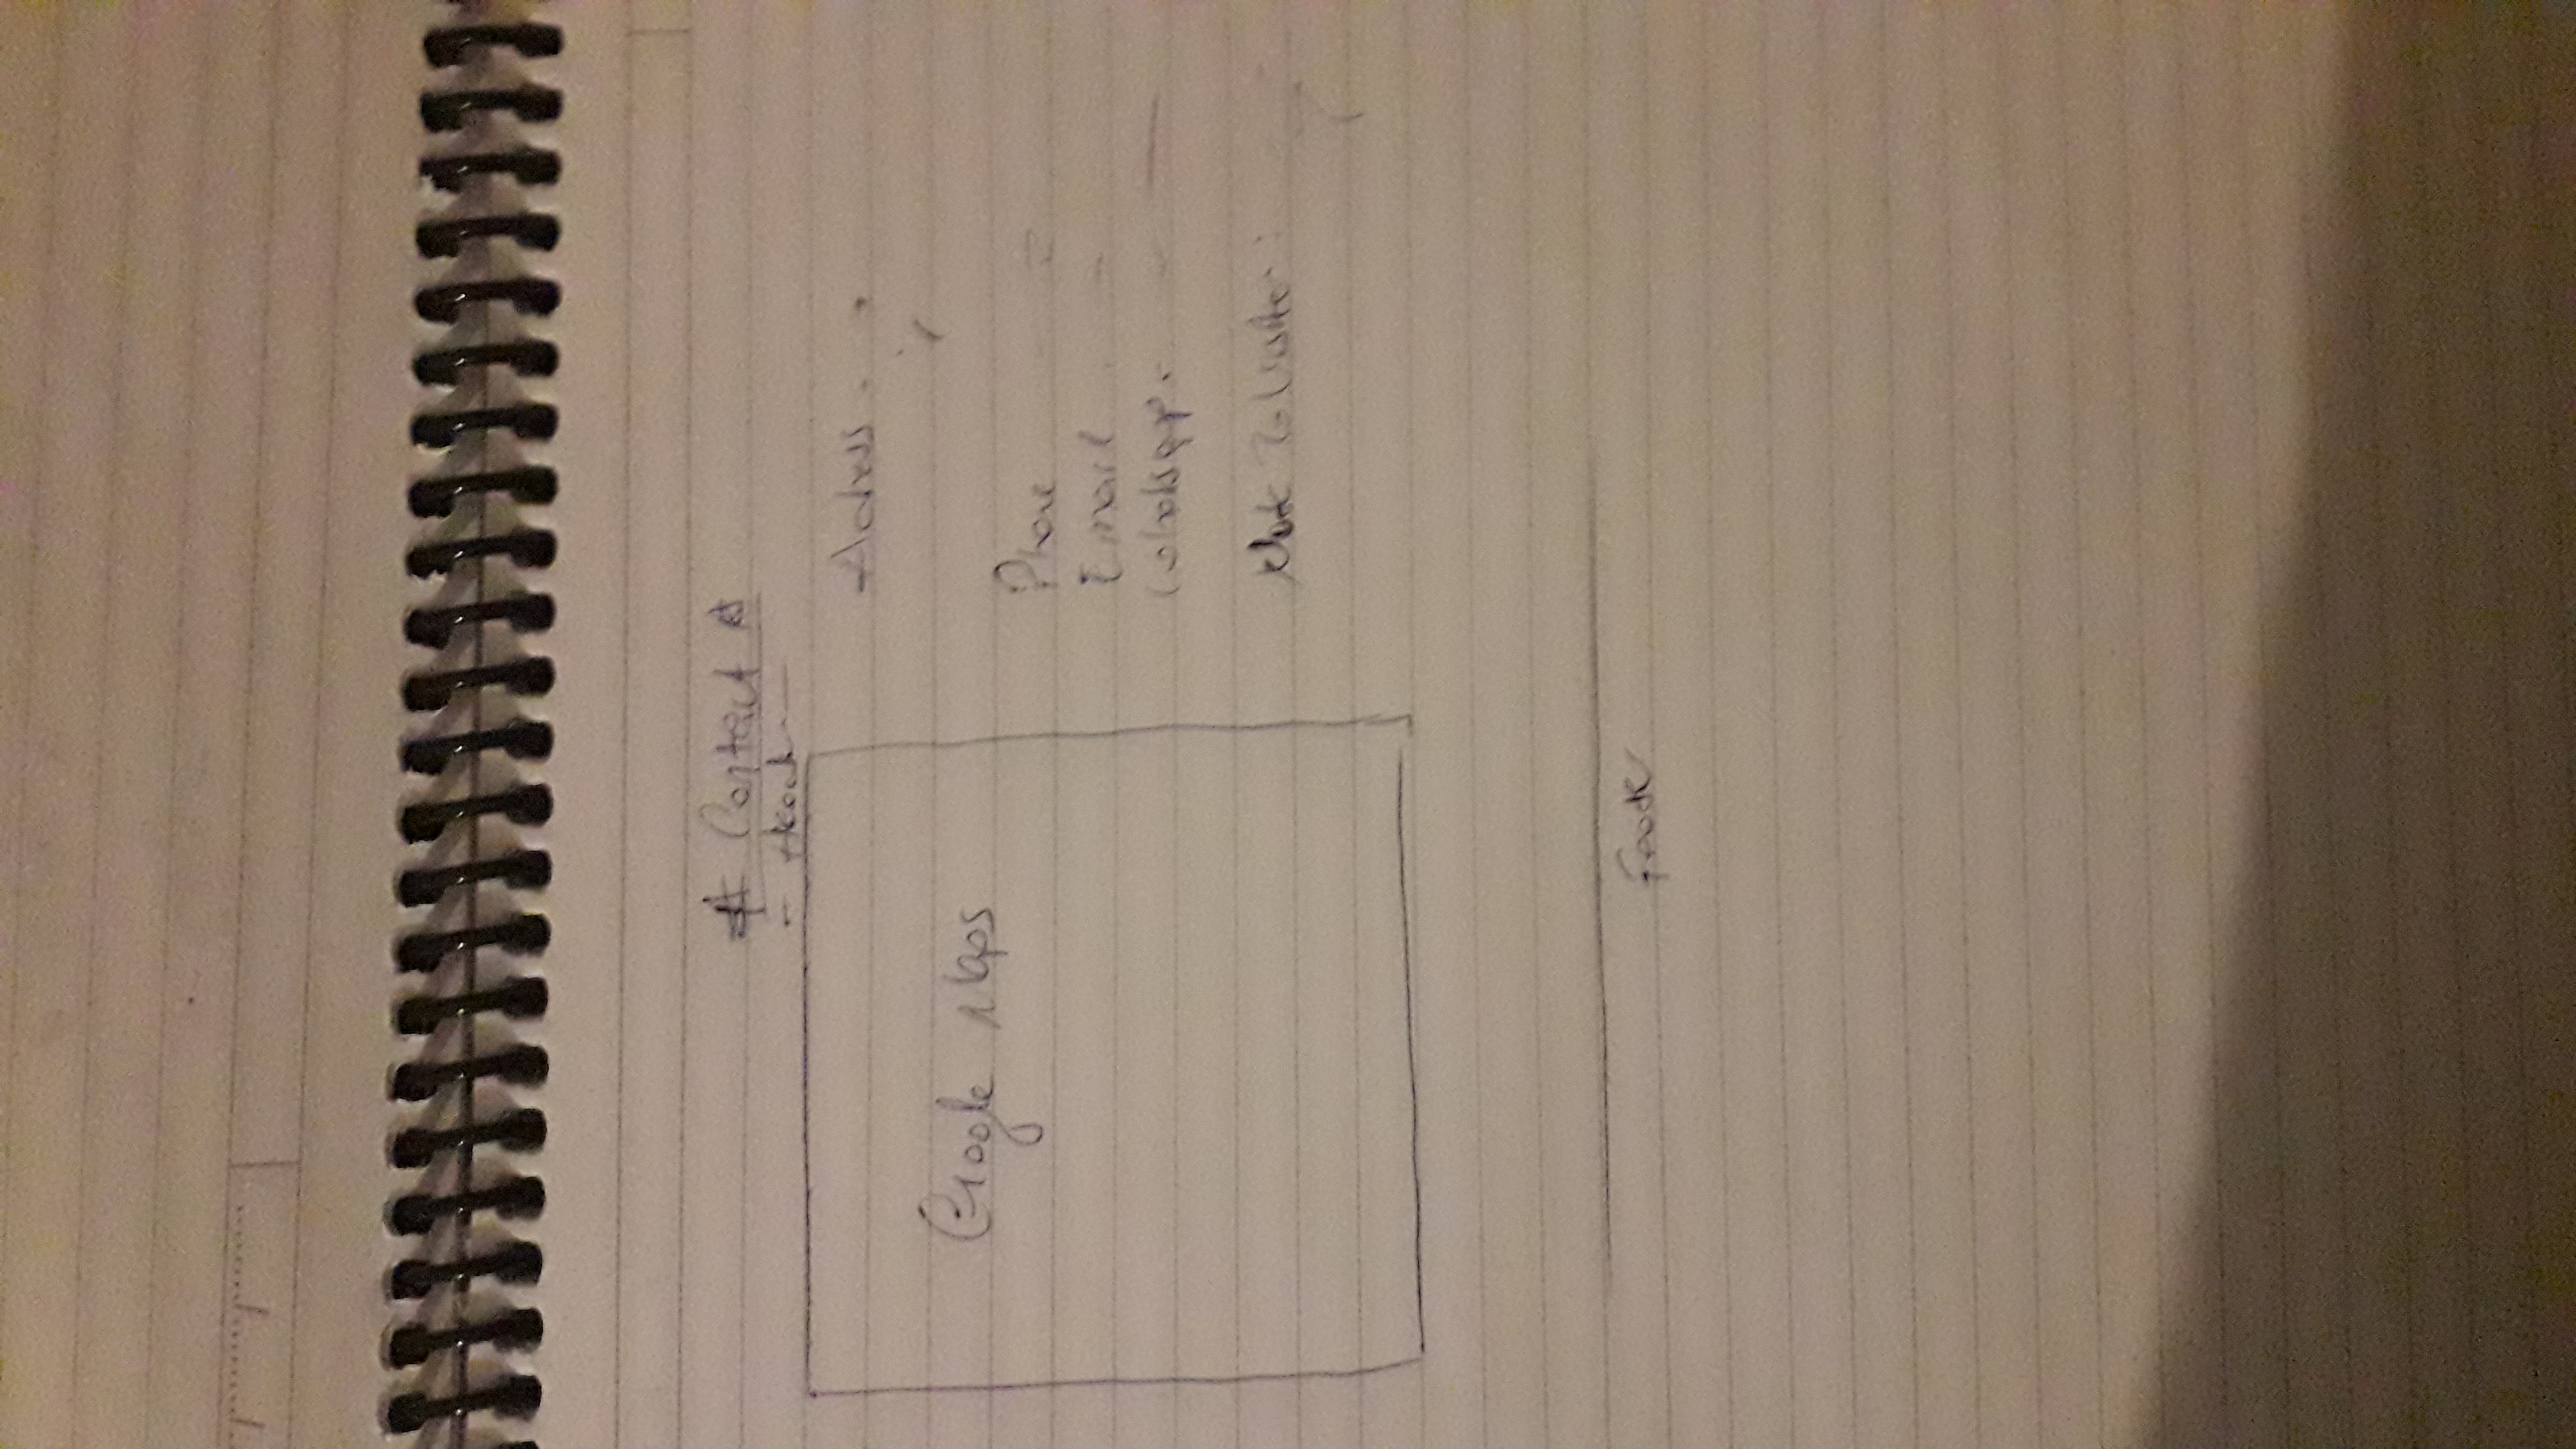 # Contact #
Header
Google Maps
Adress
Phone
Email
Whatsapp.
Note to Visitor:
Footer